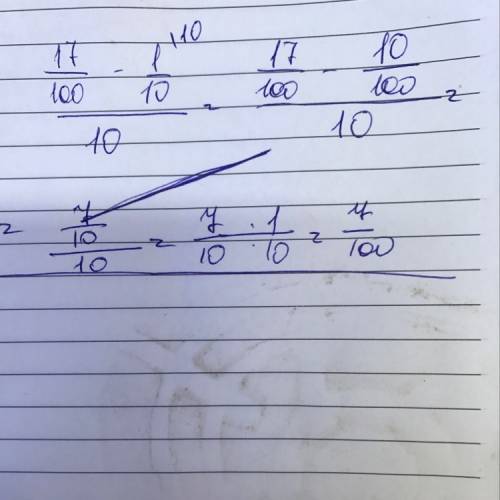 17/100 - 1/10 \10 = 17/100 - 10/100 =
10 10
= 7/10 / 10 = 7/10 · 1/10 = 7/100